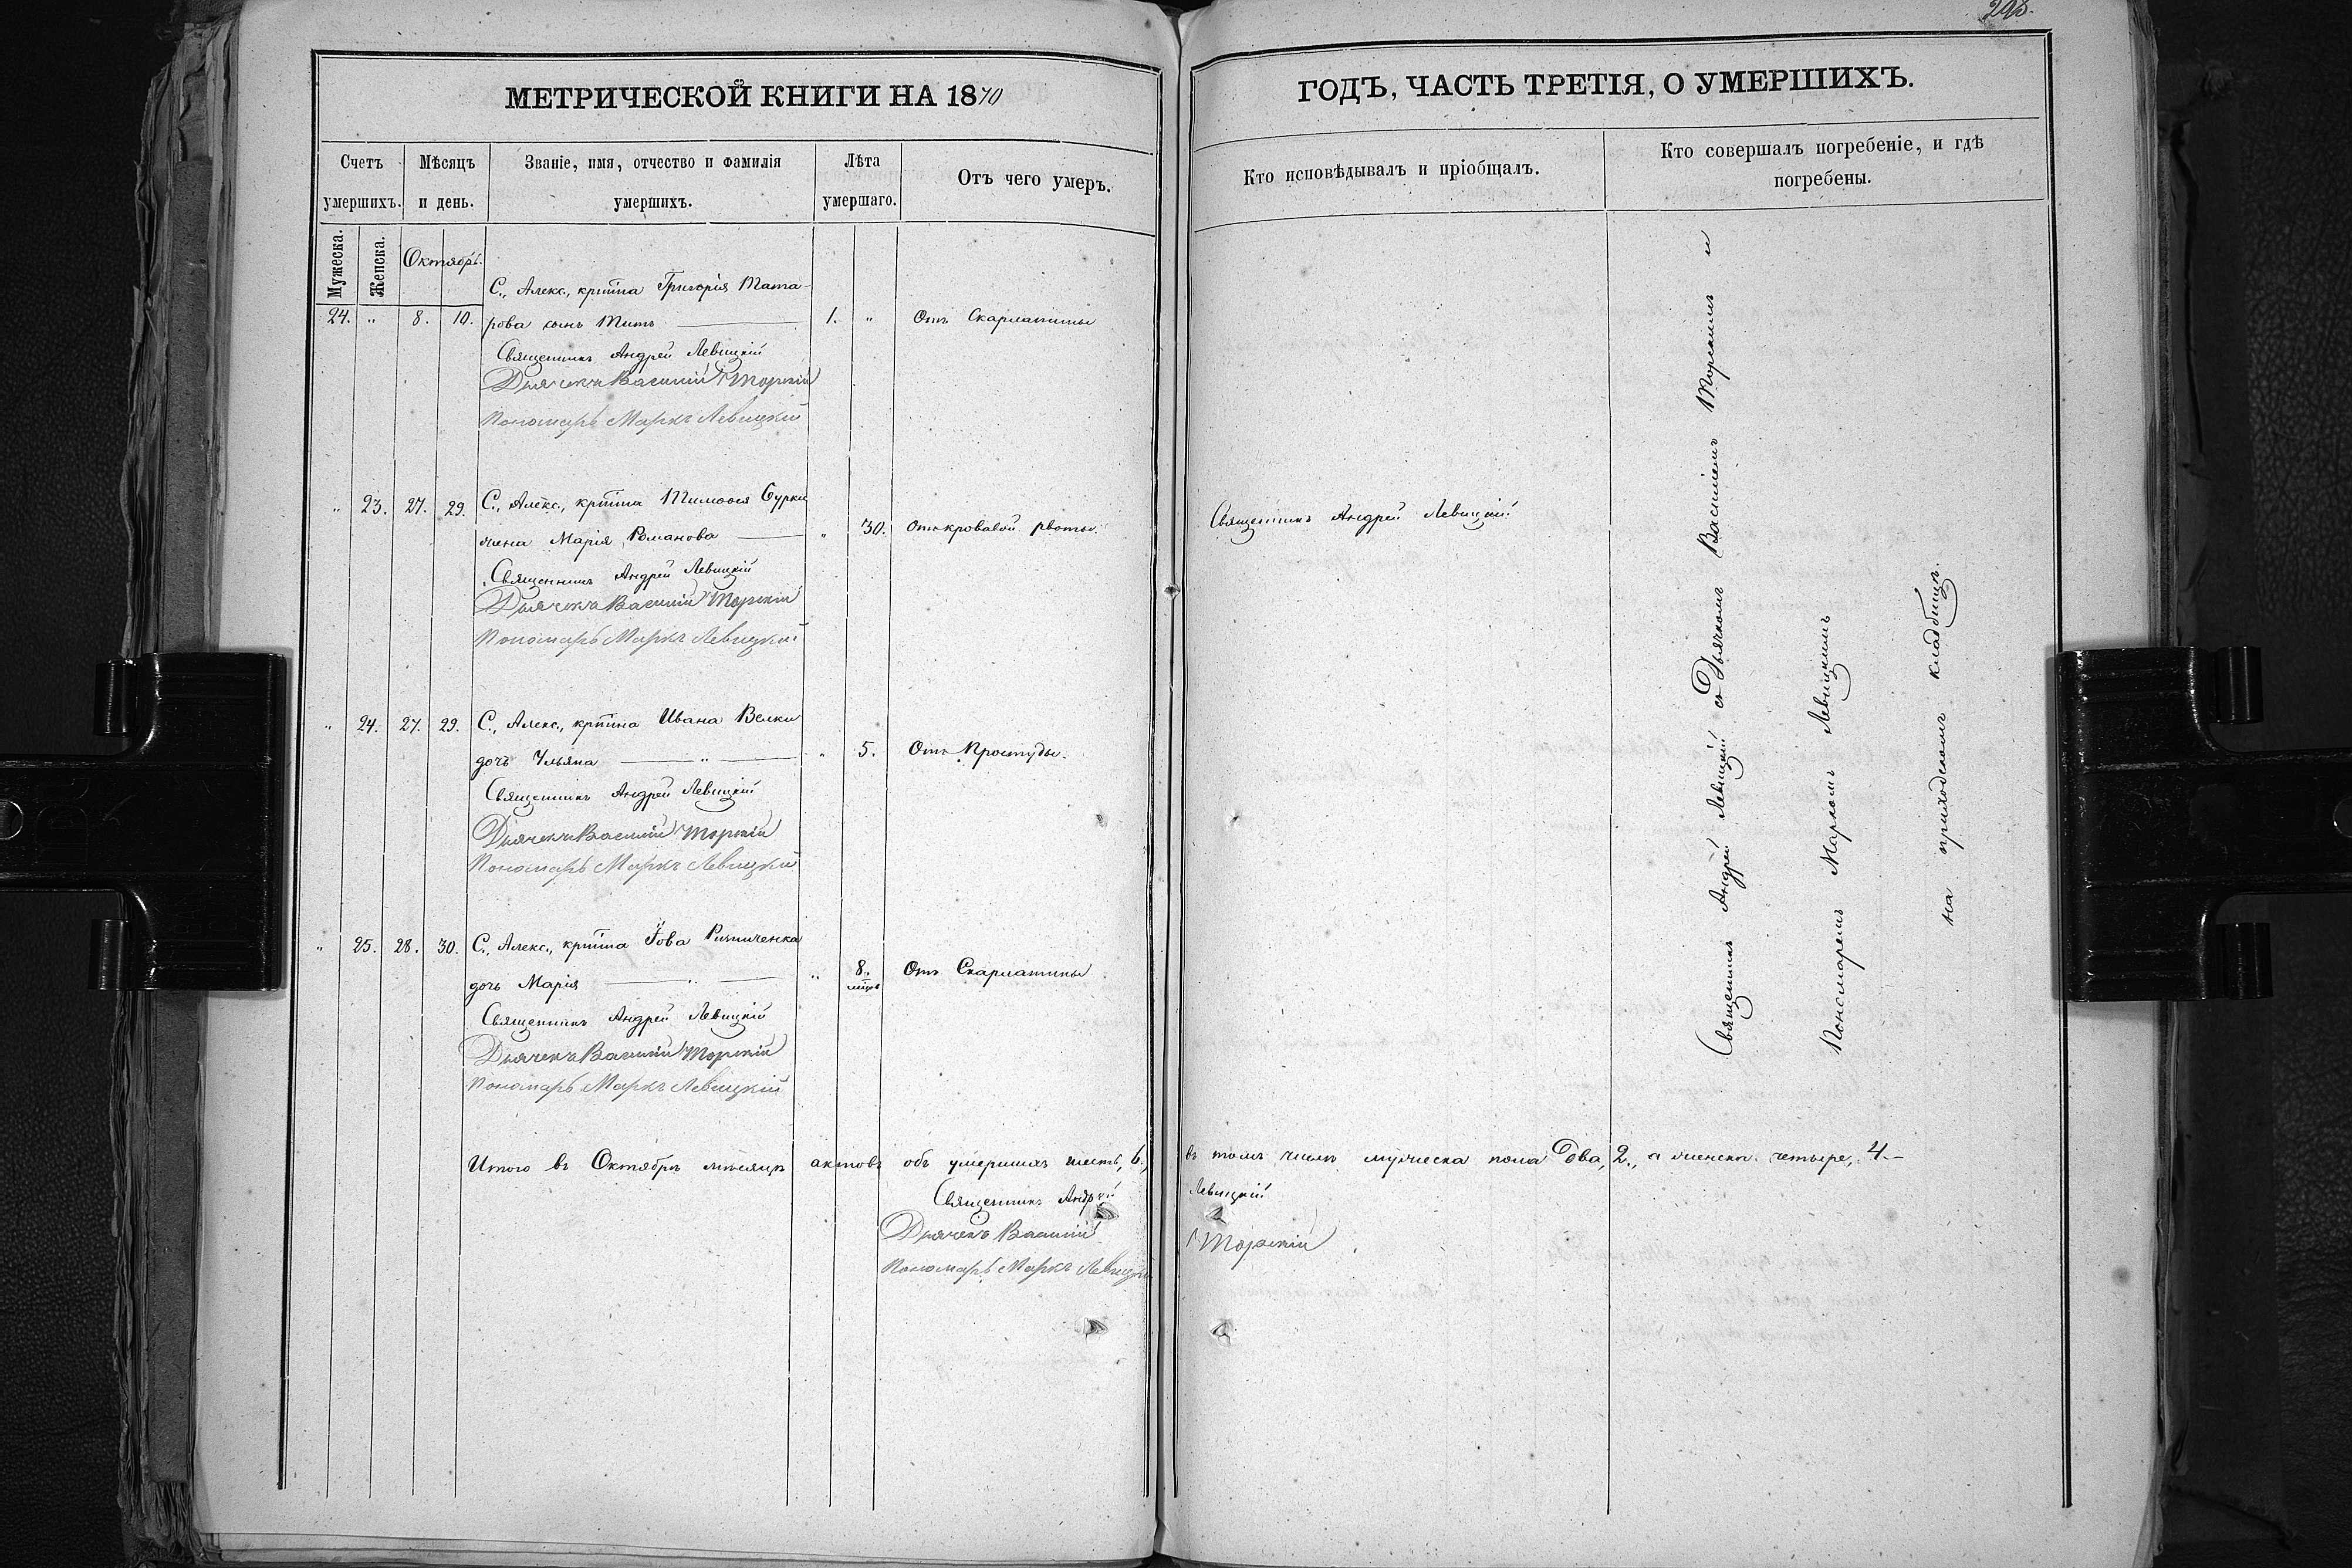 298.
МЕТРИЧЕСКОЙ КНИГИ НА 1870
ГОДЪ, ЧАСТЬ ТРЕТІЯ, О УМЕРШИХЪ.
Счетъ умершихъ.
Мѣсяцъ и день.
Званіе, имя, отчество и фамилія умершихъ.
Лѣта умершаго.
Отъ чего умеръ.
Кто исповѣдывалъ и пріобщалъ.
Кто совершалъ погребеніе, и гдѣ погребены.
Мужеска.
Женска.
Октябрь.
С., Алекс., крт҃на Григорія Тата-
24. " 8. 10. рова сынъ Титъ 1. " Отъ Скарлатины
Священникъ Андрей Левицкій
Дьячекъ Василій Торскій
Пономарь Маркъ Левицкій
" 23. 27. 29. С., Алекс., крт҃на Тимофея Сурки
жена Марія Романова " 30. Отъ кровавой рвоты. Священникъ Андрей Левицкій
Священникъ Андрей Левицкій
Дьячекъ Василій Торскій
Пономарь Маркъ Левицкій
" 24. 27. 29. С., Алекс., крт҃на Ивана Велки
дочь Ульяна " " 5. Отъ Простуды.
Священникъ Андрей Левицкій
Дьячекъ Василій Торскій
Пономарь Маркъ Левицкій
" 25. 28. 30. С., Алекс., крт҃на Іова
дочь Марія " " 8. Отъ Скарлатины
Священникъ Андрей Левицкій
Дьячекъ Василій Торскій
Пономарь Маркъ Левицкій
Священникъ Андрей Левицкій съ Дьячкомъ Василіемъ Торскимъ и
Пономаремъ Маркомъ Левицкимъ
на приходскомъ кладбищѣ.
Итого въ Октябрѣ мѣсяцѣ актовъ объ умершихъ шесть, 6., въ томъ числѣ мужеска пола два, 2., а женска четыре, 4.—
Священникъ Андрей Левицкій
Дьячекъ Василій Торскій
Пономарь Маркъ Левицкій